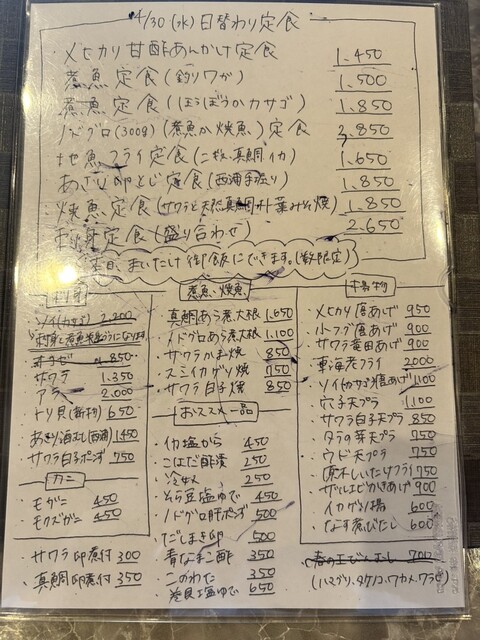 4/30(水)日替わり定食
メヒカリ甘酢あんかけ定食 1.450
煮魚定食(釣りワガ) 1.500
煮魚定食(ほうぼうかカサゴ) 1.850
ノドグロ(300g)(煮魚か焼魚)定食 3.850
地魚フライ定食(ニギス、真鯛、イカ) 1.650
あさり卵とじ定食(西浦手掘り) 1.850
焼魚定食(サワラと天然真鯛 焼) 1.850
刺身定食(盛り合わせ) 2.650
本日、まいたけ御飯にできます。(数限定)
刺身
ソイ(カサゴ) 2.200
850
サワラ 1.350
アラ 2.000
トリ貝(新物) 650
あさり酒むし(西浦) 1450
サワラ白子ポンズ 750
カニ
モガニ 450
モクズガニ 450
サワラ卵煮付 300
真鯛卵煮付 350
煮魚・焼魚
真鯛あら煮大根 1.650
ノドグロあら煮大根 1.100
サワラかま焼 850
スミイカゲソ焼 750
サワラ白子焼 850
おススメ一品
イカ塩から 450
こはだ酢漬 250
冷奴 250
そら豆塩ゆで 450
ノドグロ肝ポンズ 500
だしまき卵 500
青なまこ酢 350
このわた 350
塩ゆで 650
揚物
メヒカリ唐あげ 950
小フグ唐あげ 900
サワラ竜田あげ 900
車海老フライ 2000
ソイ(カサゴ)唐あげ 1.100
穴子天プラ 1.100
サワラ白子天プラ 850
タラの芽天プラ 750
ウド天プラ 750
原木しいたけフライ 750
ザルエビかきあげ 900
イカゲソ揚 600
なす煮びたし 600
春の土びんむし 700
(ハマグリ、タケノコ、ワカメ、ワラビ)